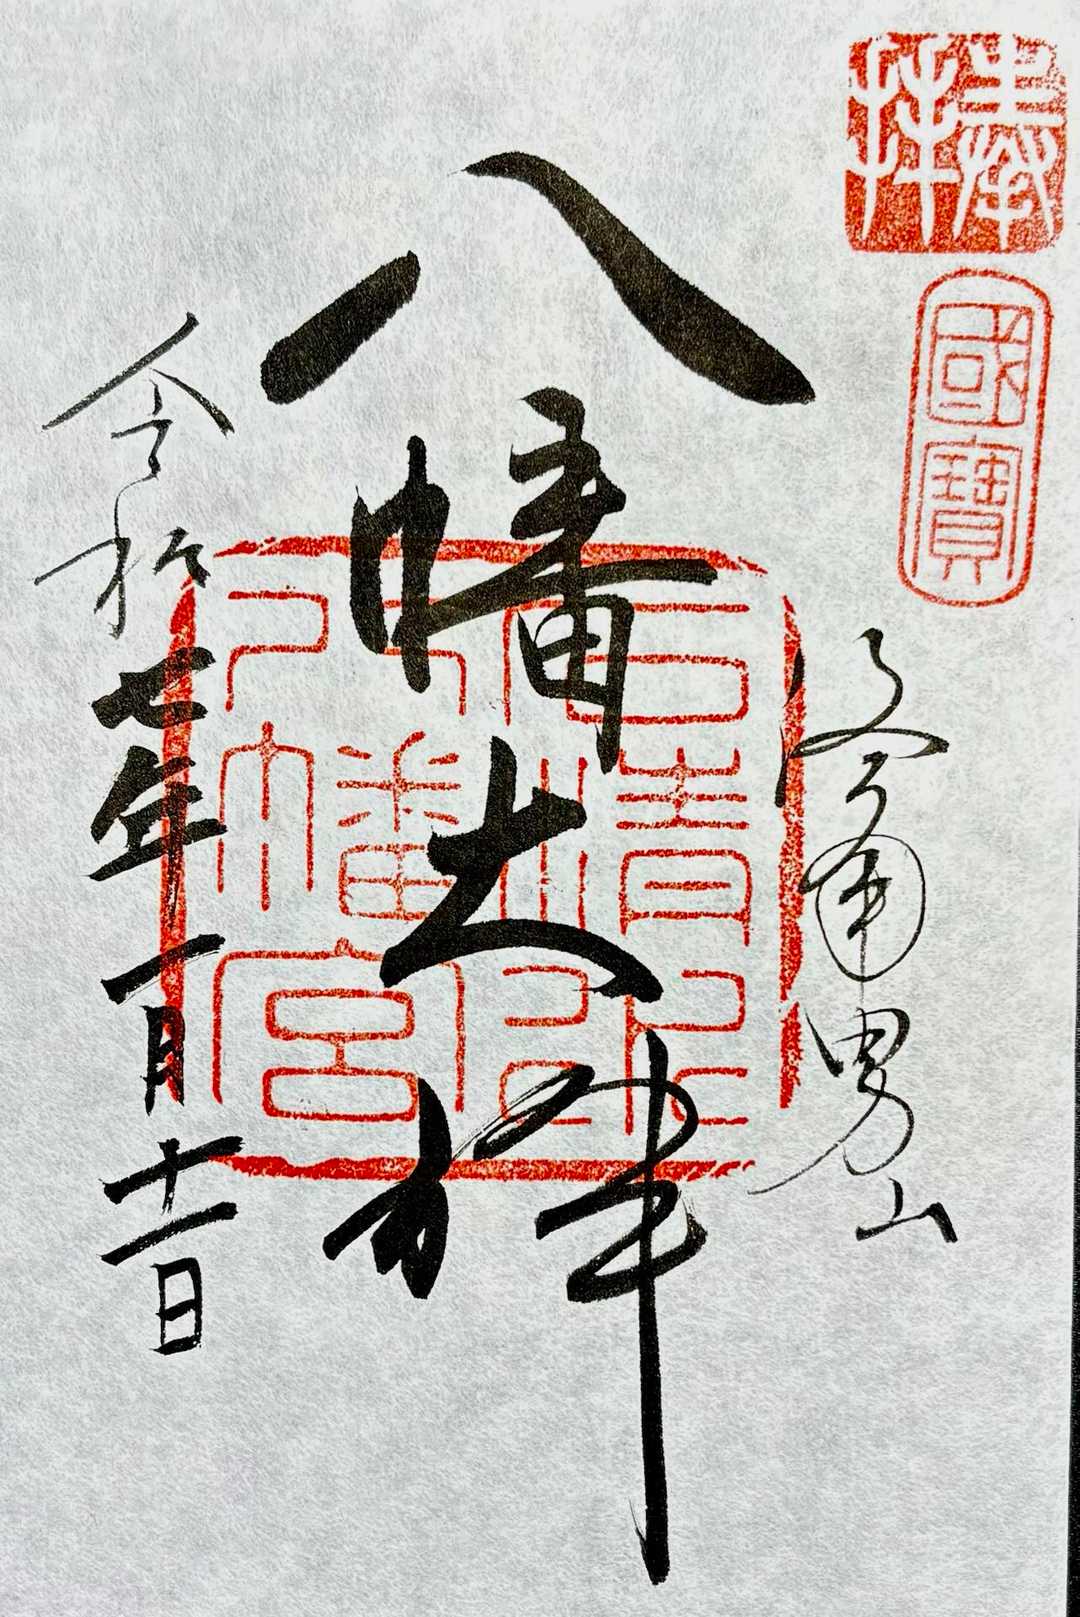 奉拝
國寶
洛南男山
八幡大神
石清水
八幡宮
令和七年一月十一日